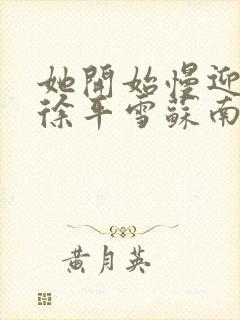 她開始慢迎
徐平雪蘇南
黃月英